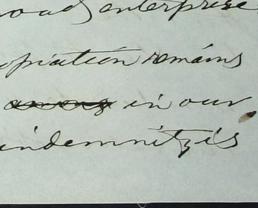 road enterprise
opiation remains
in our
indemnitzis